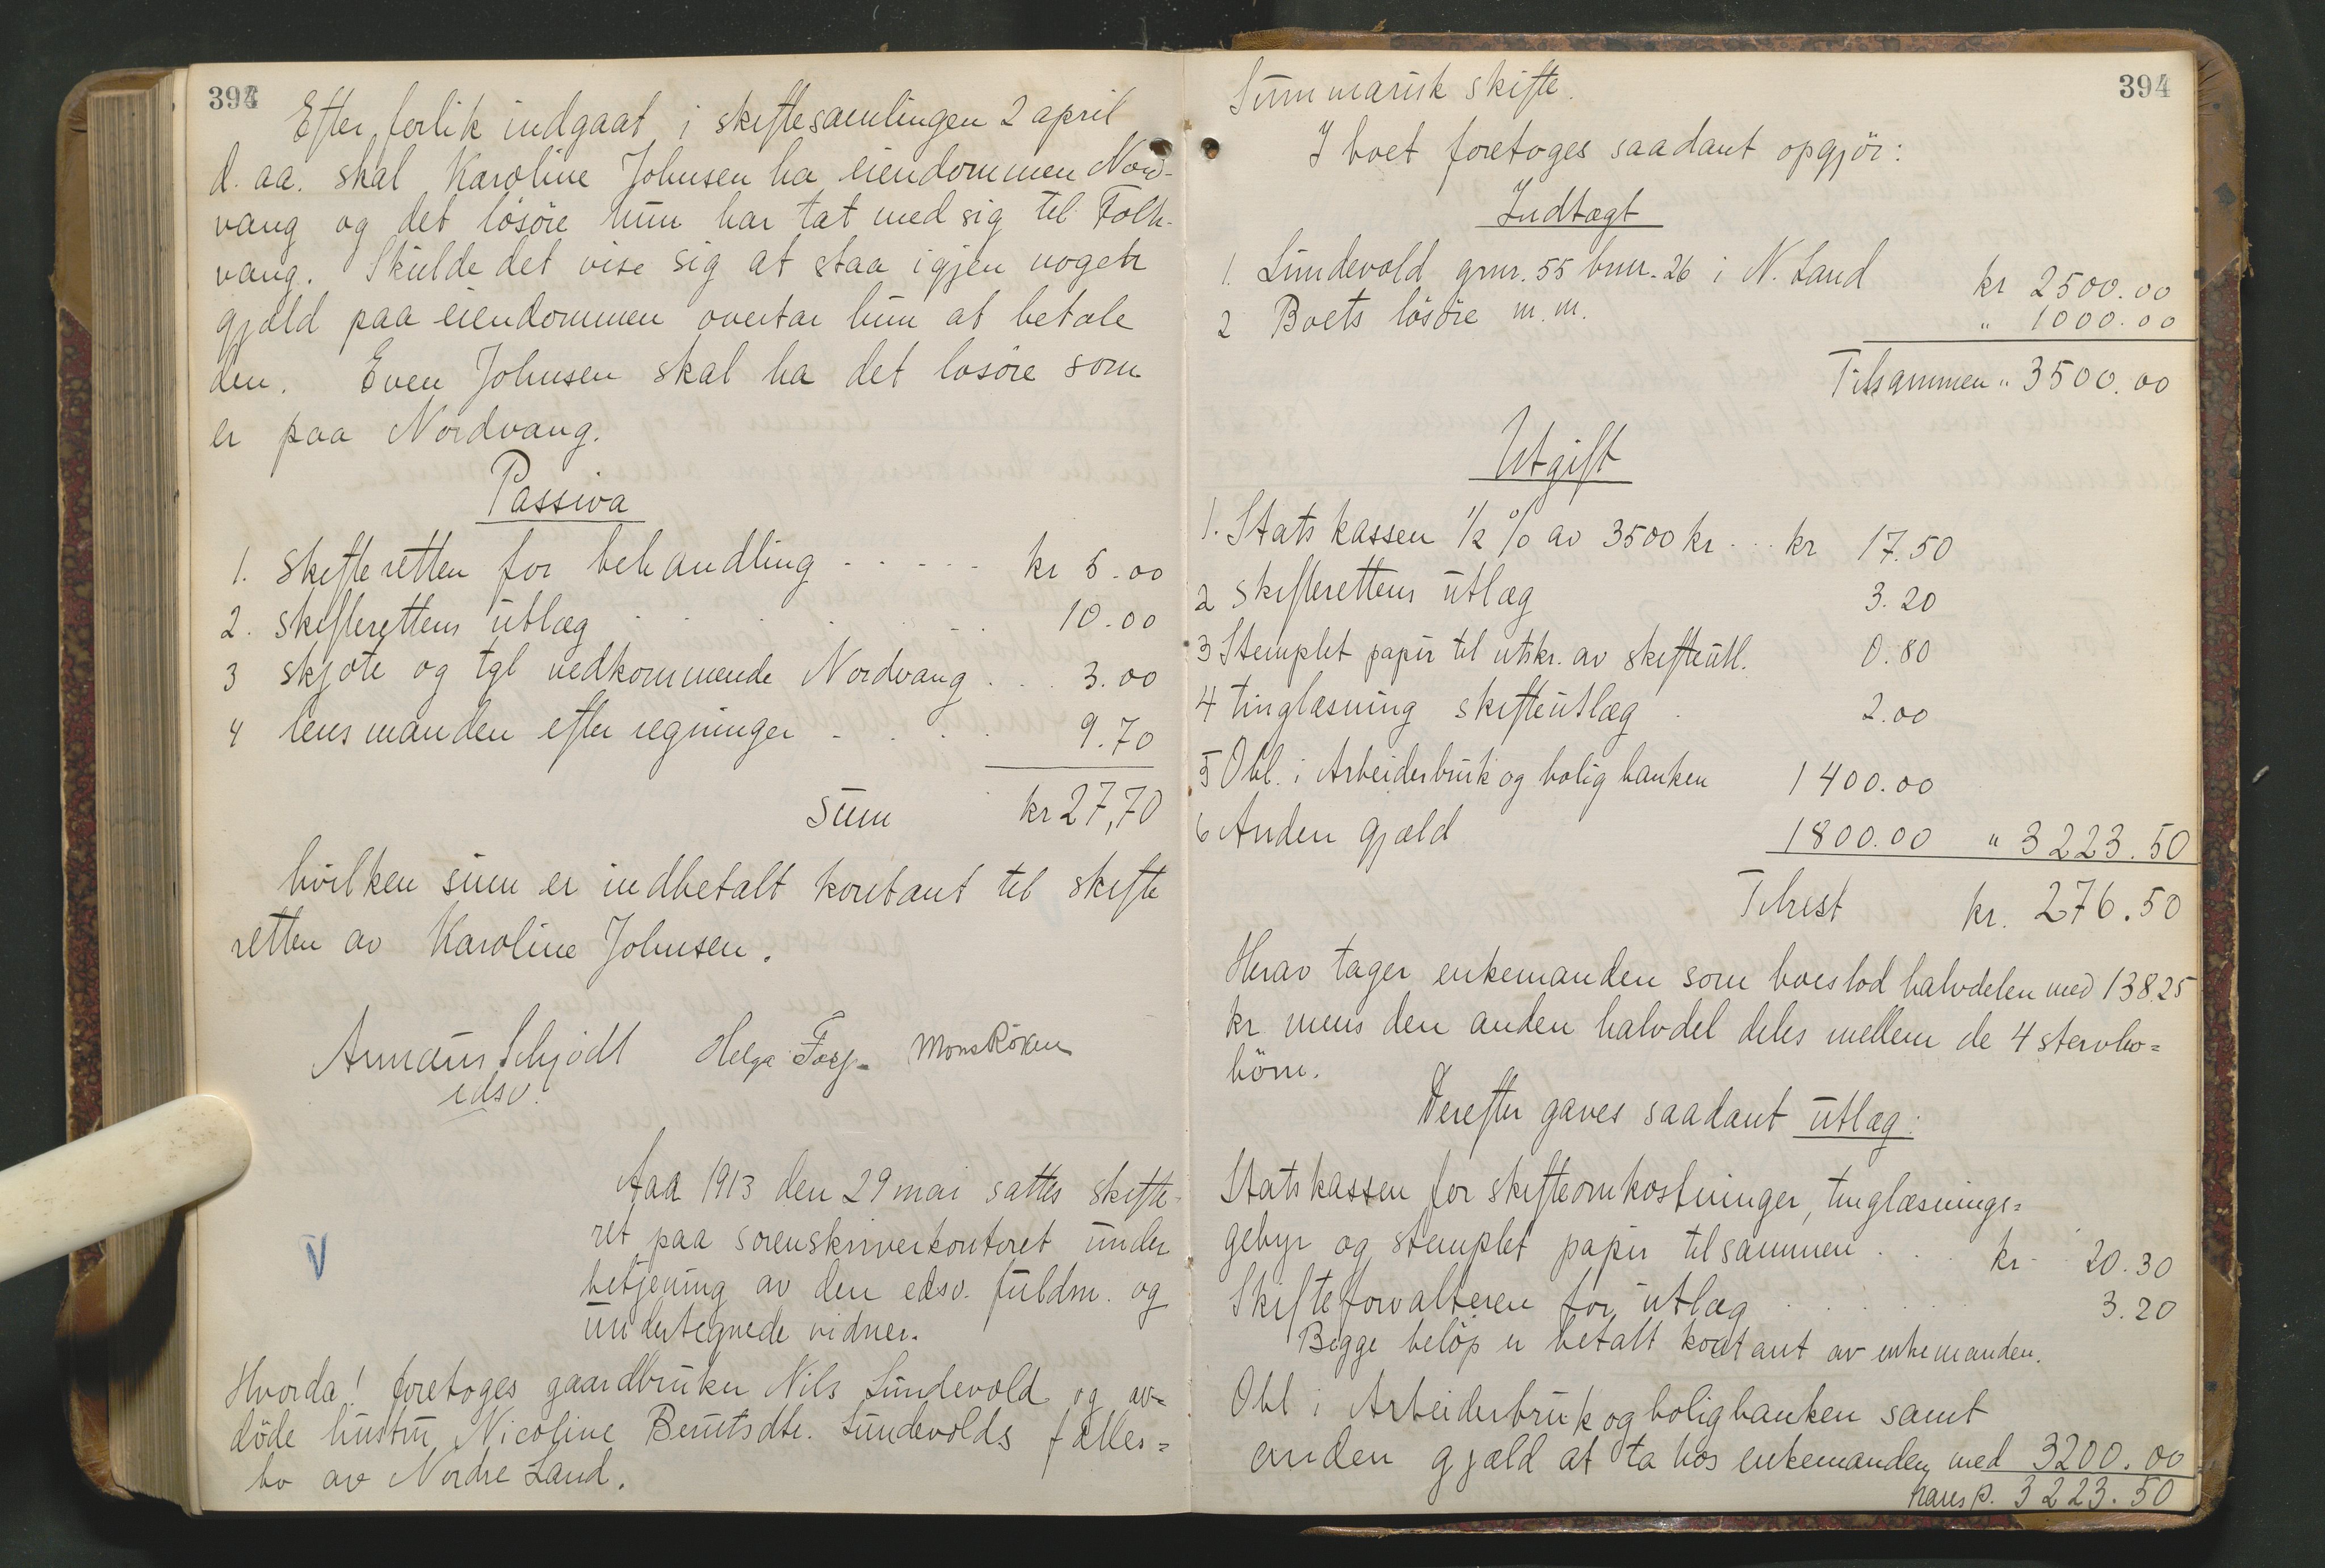 393
Efter forlik indgaat i skiftesamlingen 2 april
d. aa. skal Karoline Johnsen ha eiendommen Nord-
vang og det lösöre hun har tat med sig til Folk-
vang. Skulde det vise sig at staa igjen noget
gjæld paa eiendommen overtar hun at betale
den. Even Johnsen skal ha det losöre som
er paa Nordvang.
Passiva
1. Skifteretten for behandling - - - - - kr 5.00
2. skifterettens utlæg 10.00
3 skjöte og tgl vedkommende Nordvang . . . 3.00
4 lensmanden efter regninger - . . . 9.70
Sum kr 27,70
hvilken sum er indbetalt kontant til skifte
retten av Karoline Johnsen.
Annæus Schjödt Helga Mons Röken
edsv.
Aaa 1913 den 29 mai sattes skifte-
ret paa sorenskriverkontoret under
betjening av den edsv. fuldm. og
undertegnede vidner.
V
Hvorda! foretoges gaardbruker Nils Lundevold og av-
döde hustru Nicoline Berntsdtr. Lundevolds fælles=
bo av Nordre Land.
394
Summarisk skifte.
I boet foretoges saadant opgjör:
Indtægt
1. Lundevold gnr. 55 bnr. 26 i N. Land kr 2500.00
2 Boets lösöre m.m. " 1000.00
Tilsammen " 3500.00
Utgift
1. Statskassen 1/2 % av 3500 kr . . . kr 17.50
2 skifterettens utlæg 3.20
3 Stemplet papir til utskr. av skifteutl. 0.80
4 tinglæsning skifteutlæg . 2.00
5 Obl. i Arbeiderbruk og bolig banken 1400.00
6 Anden gjæld 1800.00 " 3223.50
Tilrest kr. 276.50
Herav tager enkemanden som boeslod halvdelen med 138.25
kr mens den anden halvdel deles mellem de 4 stervbo=
börn.
Derefter gaves saadant utlæg:
Statskassen for skifteomkostninger, tinglæsnings=
gebyr og stemplet papir tilsammen . . . kr - 20.30
Skifteforvalteren for utlæg . . . . . 3.20
Begge belöp er betalt kontant av enkemanden.
Obl i Arbeiderbruk og boligbanken samt
anden gjæld at ta hos enkemanden med 3200.00
transp. 3223.50